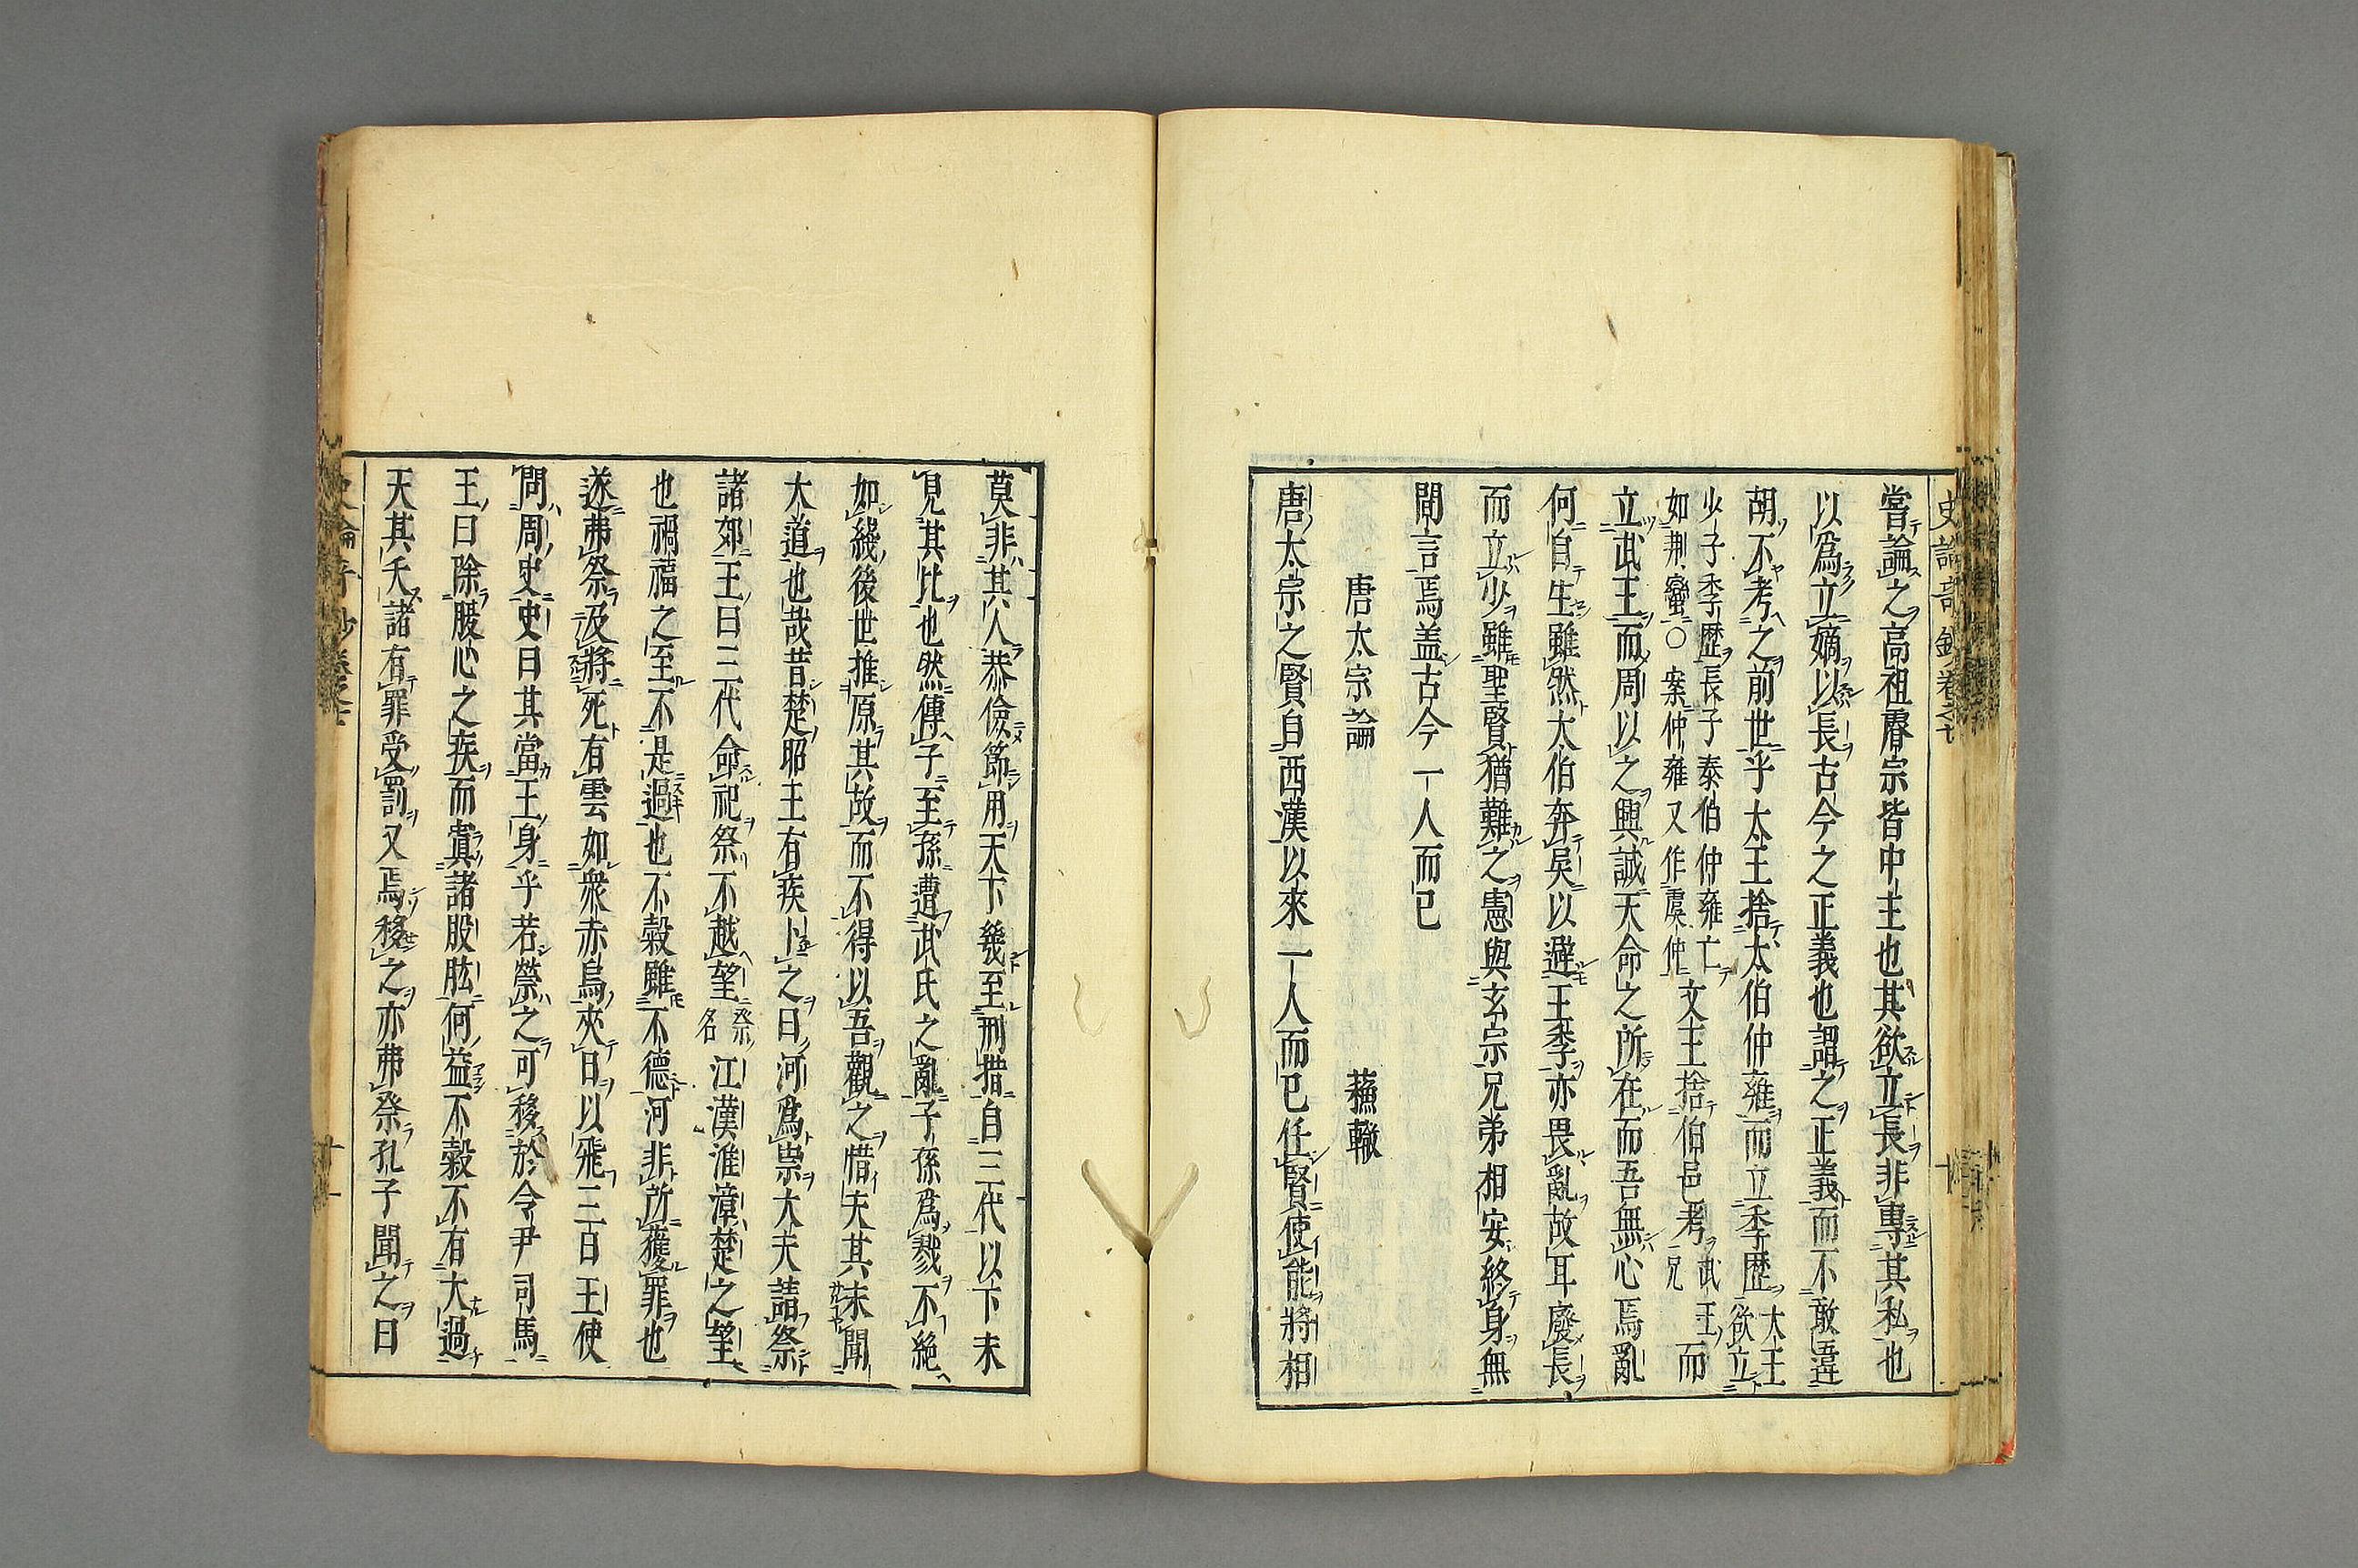 史論奇鈔卷之七
嘗論之高祖睿宗皆中主也其欲立長非專其私也
以爲立嫡以長古今之正義也謂之正義而不敢違
胡不考之前世乎太王捨太伯仲雍而立季歷大王欲立
少子季歷長子泰伯仲雍亡如荆蠻○案仲雍又作虞仲文王捨伯邑考武王兄而
立武王而周以之興誠天命之所在而吾無心焉亂
何自生雖然太伯奔吳以避王季亦畏亂故耳廢長
而立少雖聖賢猶難之憲與玄宗兄弟相安終身無
間言焉盖古今一人而已
唐太宗論 蘓轍
唐太宗之賢自西漢以來一人而已任賢使能將相
莫非其人恭儉節用天下幾至刑措自三代以下未
見其比也然傳子至孫遭武氏之亂子孫爲戮不絶
如綫後世推原其故而不得以吾觀之惜夫其未聞
大道也哉昔楚昭王有疾卜之曰河爲祟大夫請祭
諸郊王曰三代命祀祭不越望祭名江漢淮漳楚之望
也禍福之至不是過也不穀雖不德河非所獲罪也
遂弗祭及將死有雲如衆赤烏夾日以飛三日王使
問周史史曰其當王身乎若禜之可移於令尹司馬
王曰除腹心之疾而寘諸股肱何益不穀不有大過
天其夭諸有罪受罰又焉移之亦弗祭孔子聞之曰